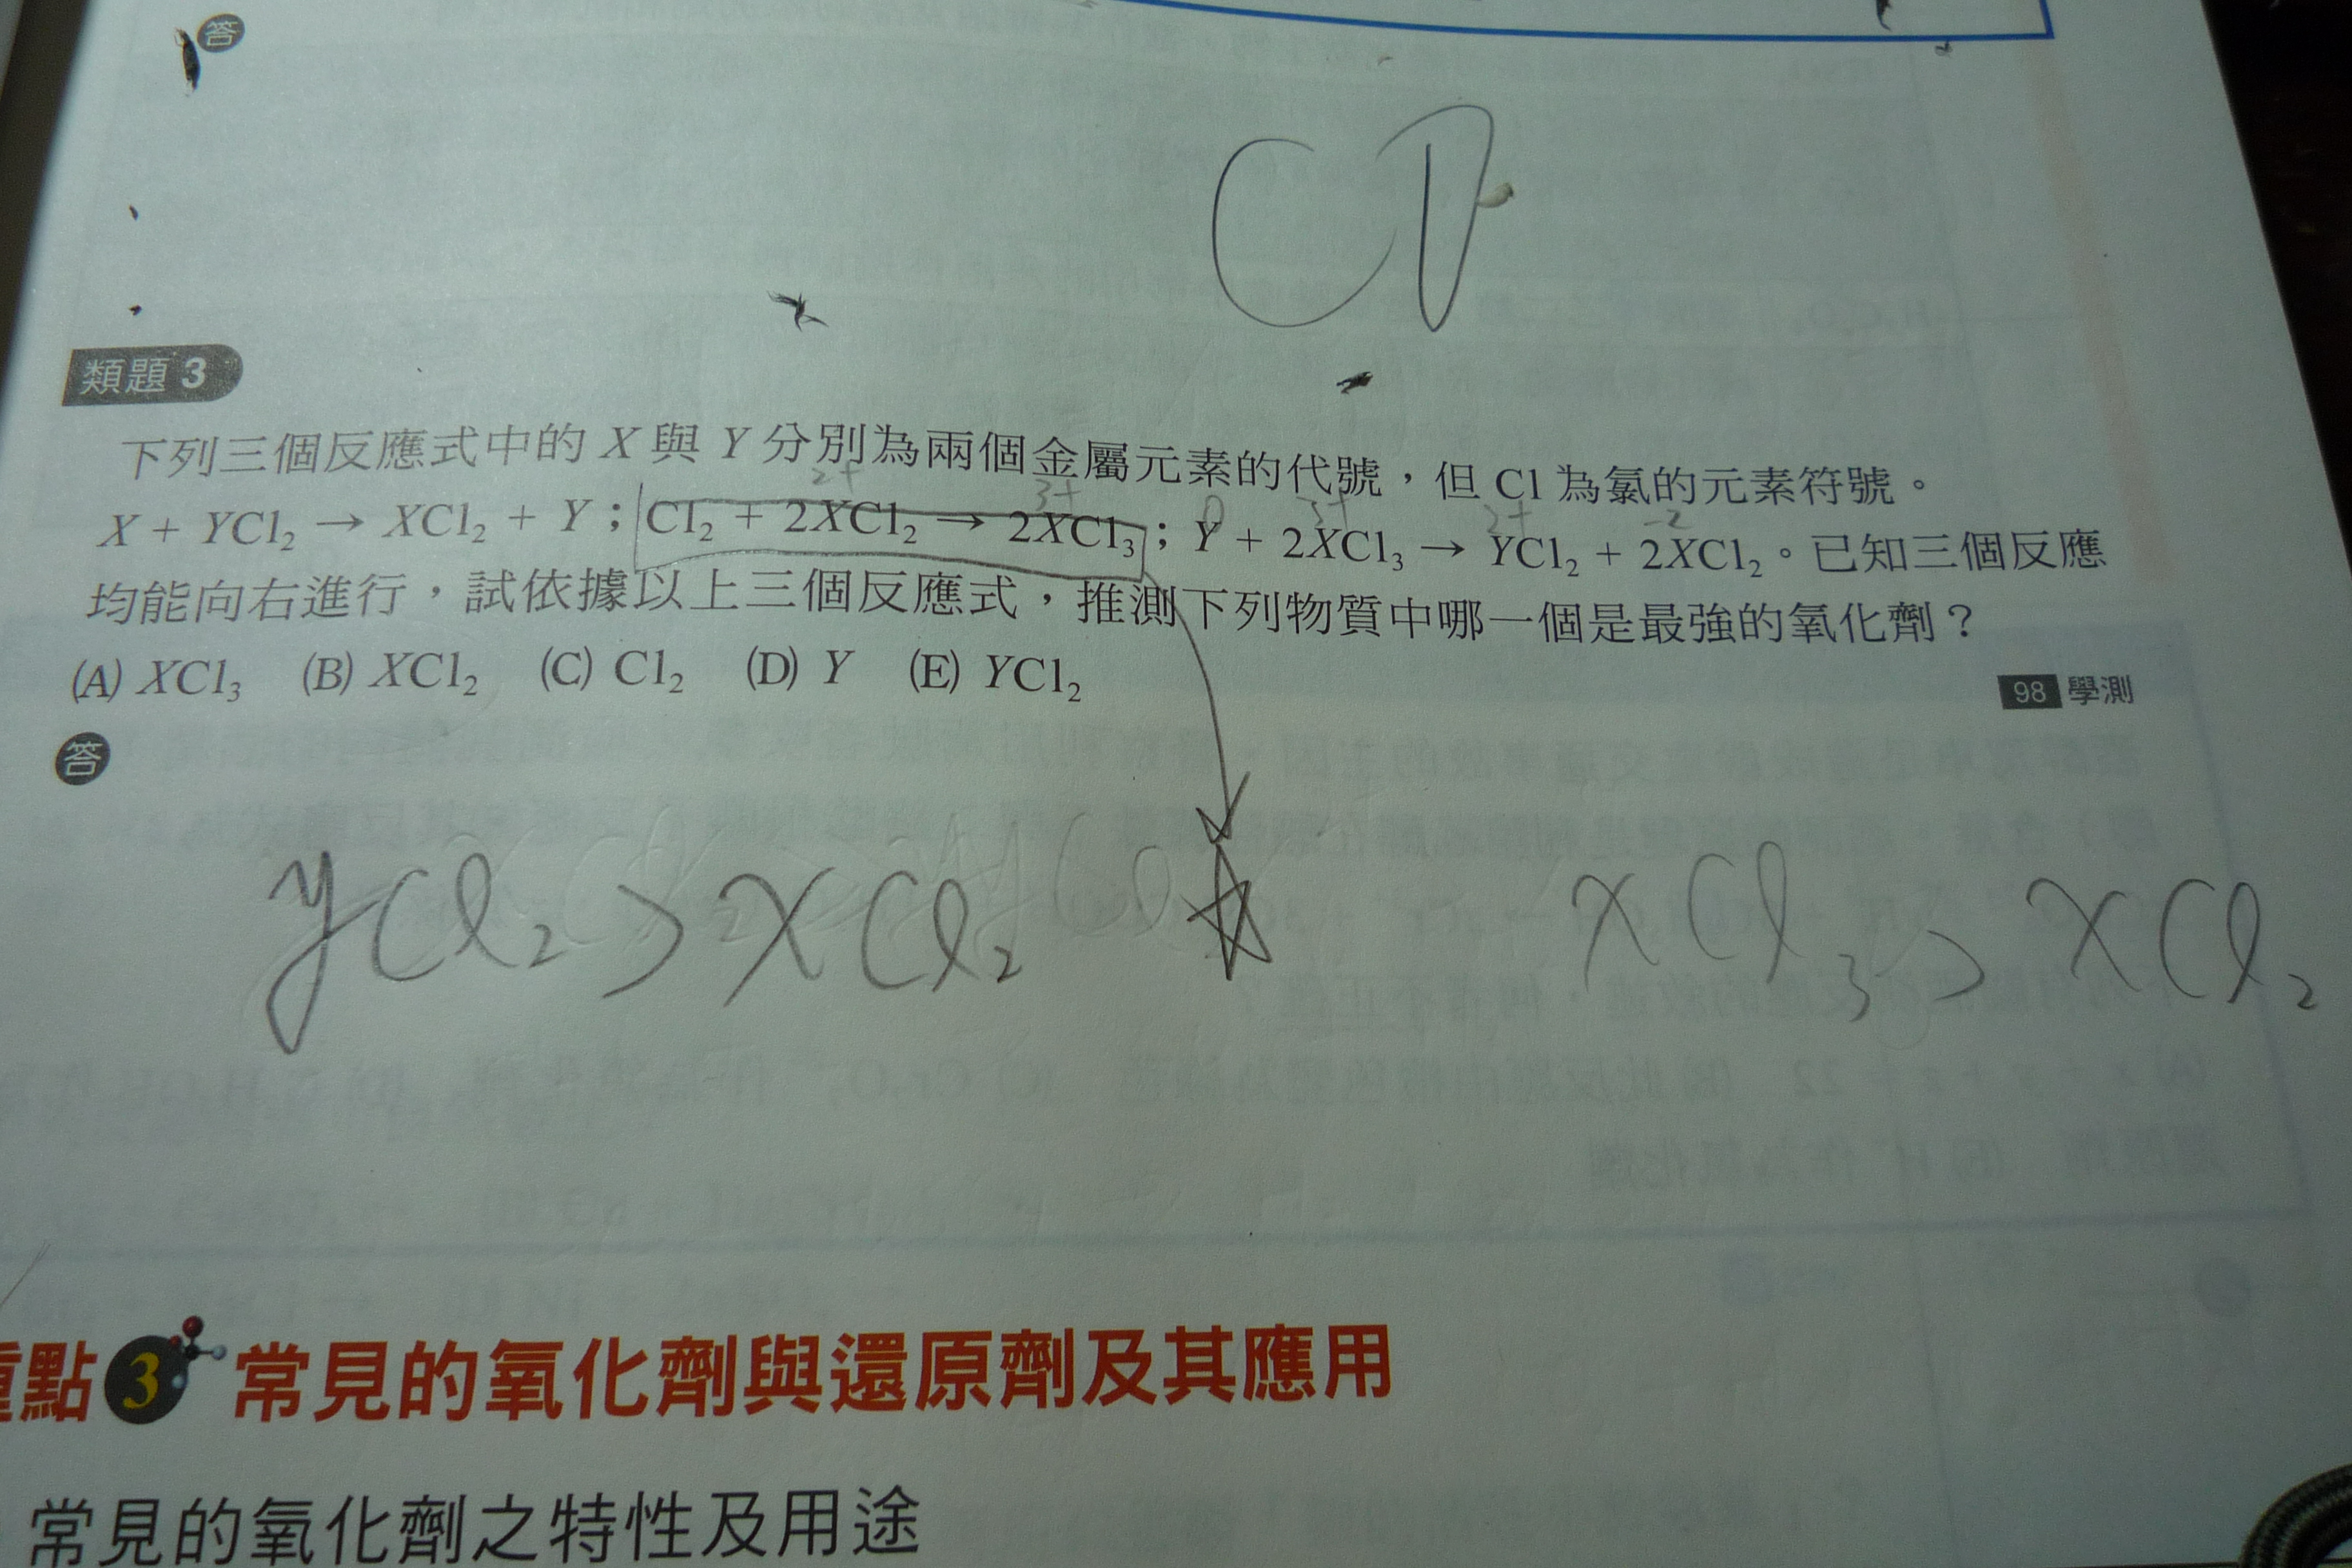 答
CD
類題 3
下列三個反應式中的 X 與 Y 分別為兩個金屬元素的代號，但 Cl 為氯的元素符號。
2+ 3+ 0 3+ 2+ -2
X + YCl₂ → XCl₂ + Y；Cl₂ + 2XCl₂ → 2XCl₃；Y + 2XCl₃ → YCl₂ + 2XCl₂。已知三個反應
均能向右進行，試依據以上三個反應式，推測下列物質中哪一個是最強的氧化劑？
(A) XCl₃ (B) XCl₂ (C) Cl₂ (D) Y (E) YCl₂
98 學測
答
yCl₂ > XCl₂ XCl₃ > XCl₂
重點 3 常見的氧化劑與還原劑及其應用
常見的氧化劑之特性及用途